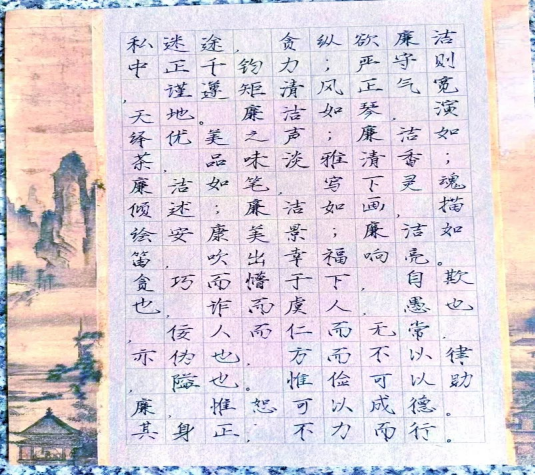 私迷途，贪纵欲廉洁
中正千钧力；严守则
，谨遵矩清风正气宽
天地。廉洁如琴，演
绎优美之声；廉洁如
茶，品味淡雅清香；
廉洁如笔，写下灵魂
倾述；廉洁如画，描
绘安康美景；廉洁如
笛，吹出幸福响亮。
贪巧而懵于下，自欺
也，诈而虞人，愚也
，佞人而仁而无常，
亦伪也，方而不以律
，隘也。惟俭可以助
廉，惟恕可以成德。
其身正；不力而行。